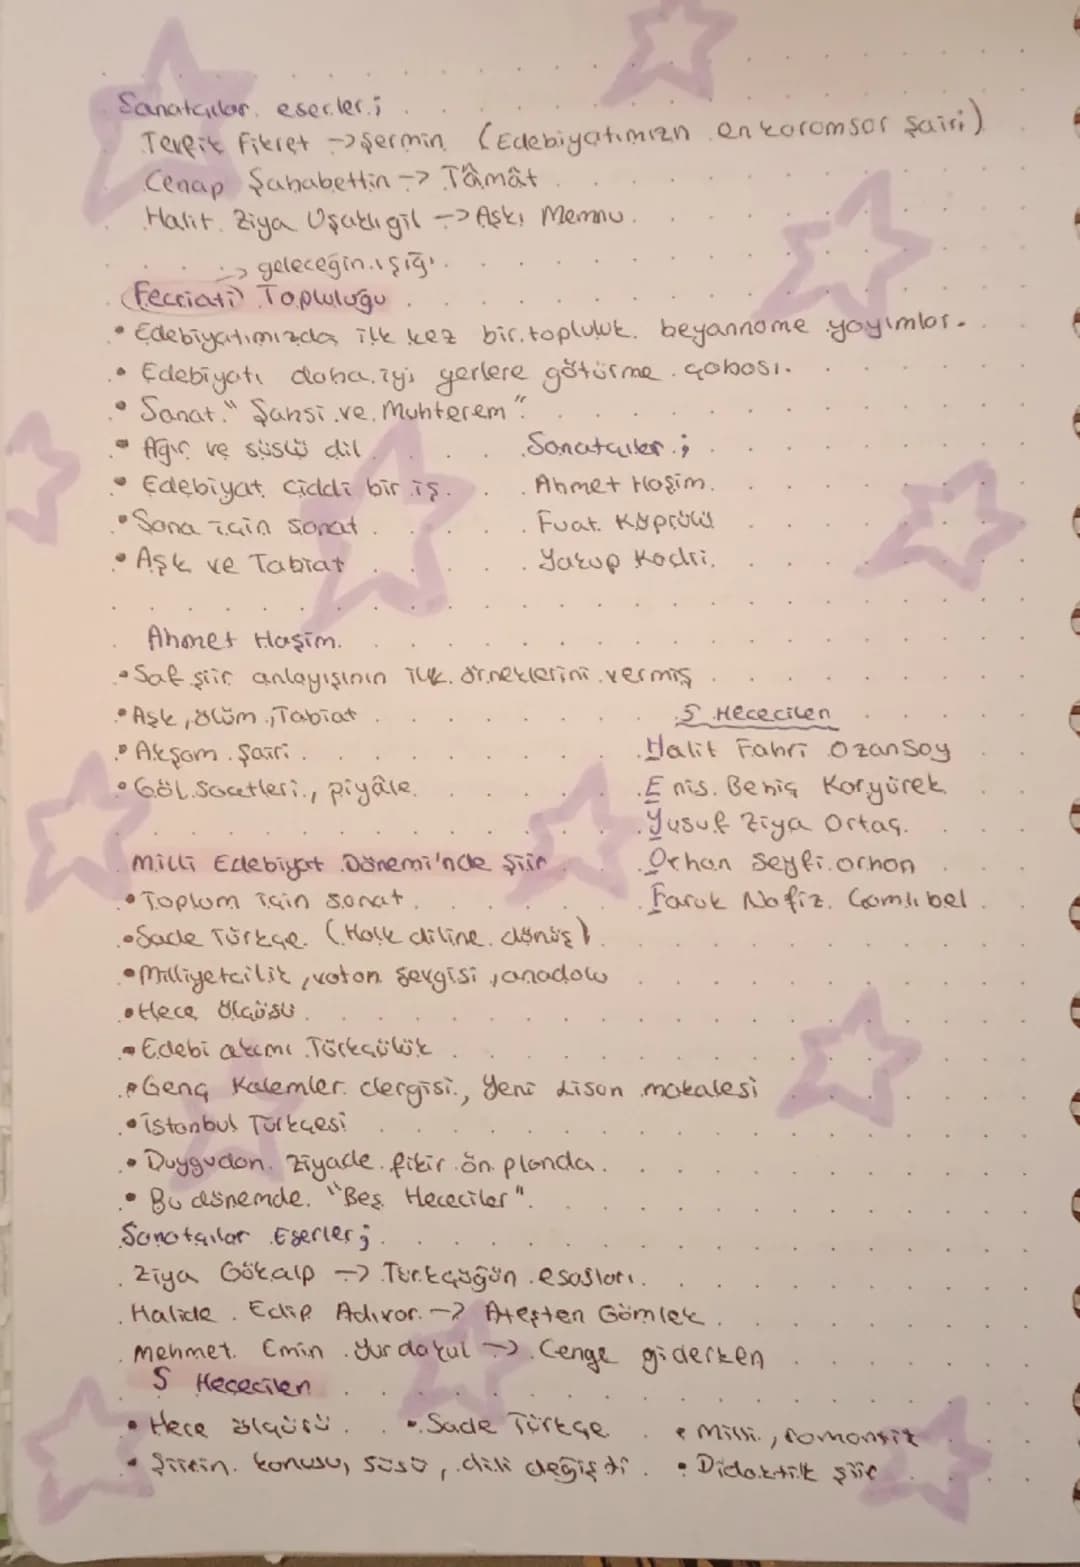 Sanatçılar, eserler;
Tevfik Fikret -> Şermin (Edebiyatımızın en karamsar şairi)
Cenap Şahabettin -> Tâmât
Halit Ziya Uşaklıgil -> Aşkı Memnu
-> geleceğin ışığı
(Fecriati) Topluluğu
• Edebiyatımızda ilk kez bir topluluk beyanname yayımlar.
• Edebiyatı daha iyi yerlere götürme çabası.
• Sanat "Şahsi ve Muhterem"
• Ağır ve süslü dil
• Edebiyat ciddi bir iş.
• Sana için sanat
• Aşk ve Tabiat
Sanatçılar;
Ahmet Haşim
Fuat Köprülü
Yakup Kadri
Ahmet Haşim
• Saf şiir anlayışının ilk örneklerini vermiş
• Aşk, ölüm, Tabiat
• Akşam Şairi
• Göl Saatleri, piyâle
5 Hececilen
Halit Fahri Ozansoy
Enis Behiç Koryürek
Yusuf Ziya Ortaç
Orhan Seyfi orhon
Faruk Nafiz Çamlıbel
Milli Edebiyat Dönemi'nde Şiir
• Toplum için sanat
• Sade Türkçe (Halk diline dönüş)
• Milliyetcilik, vatan sevgisi, anadolu
• Hece ölçüsü
• Edebi akımı Türkçülük
• Genç Kalemler dergisi, Yeni Lisan makalesi
• istanbul Türkçesi
• Duygudan ziyade fikir ön planda
• Bu dönemde "Beş Hececiler"
Sanatçılar Eserler;
Ziya Gökalp -> Türkçüğün esasları
Halide Edip Adıvar -> Ateşten Gömlek
Mehmet Emin Yurdakul -> Cenge giderken
5 Hececilen
• Hece ölçüsü • Sade Türkçe • Milli, romantik
• Şiirin konusu, süsü, dili değişti • Didaktik şiir